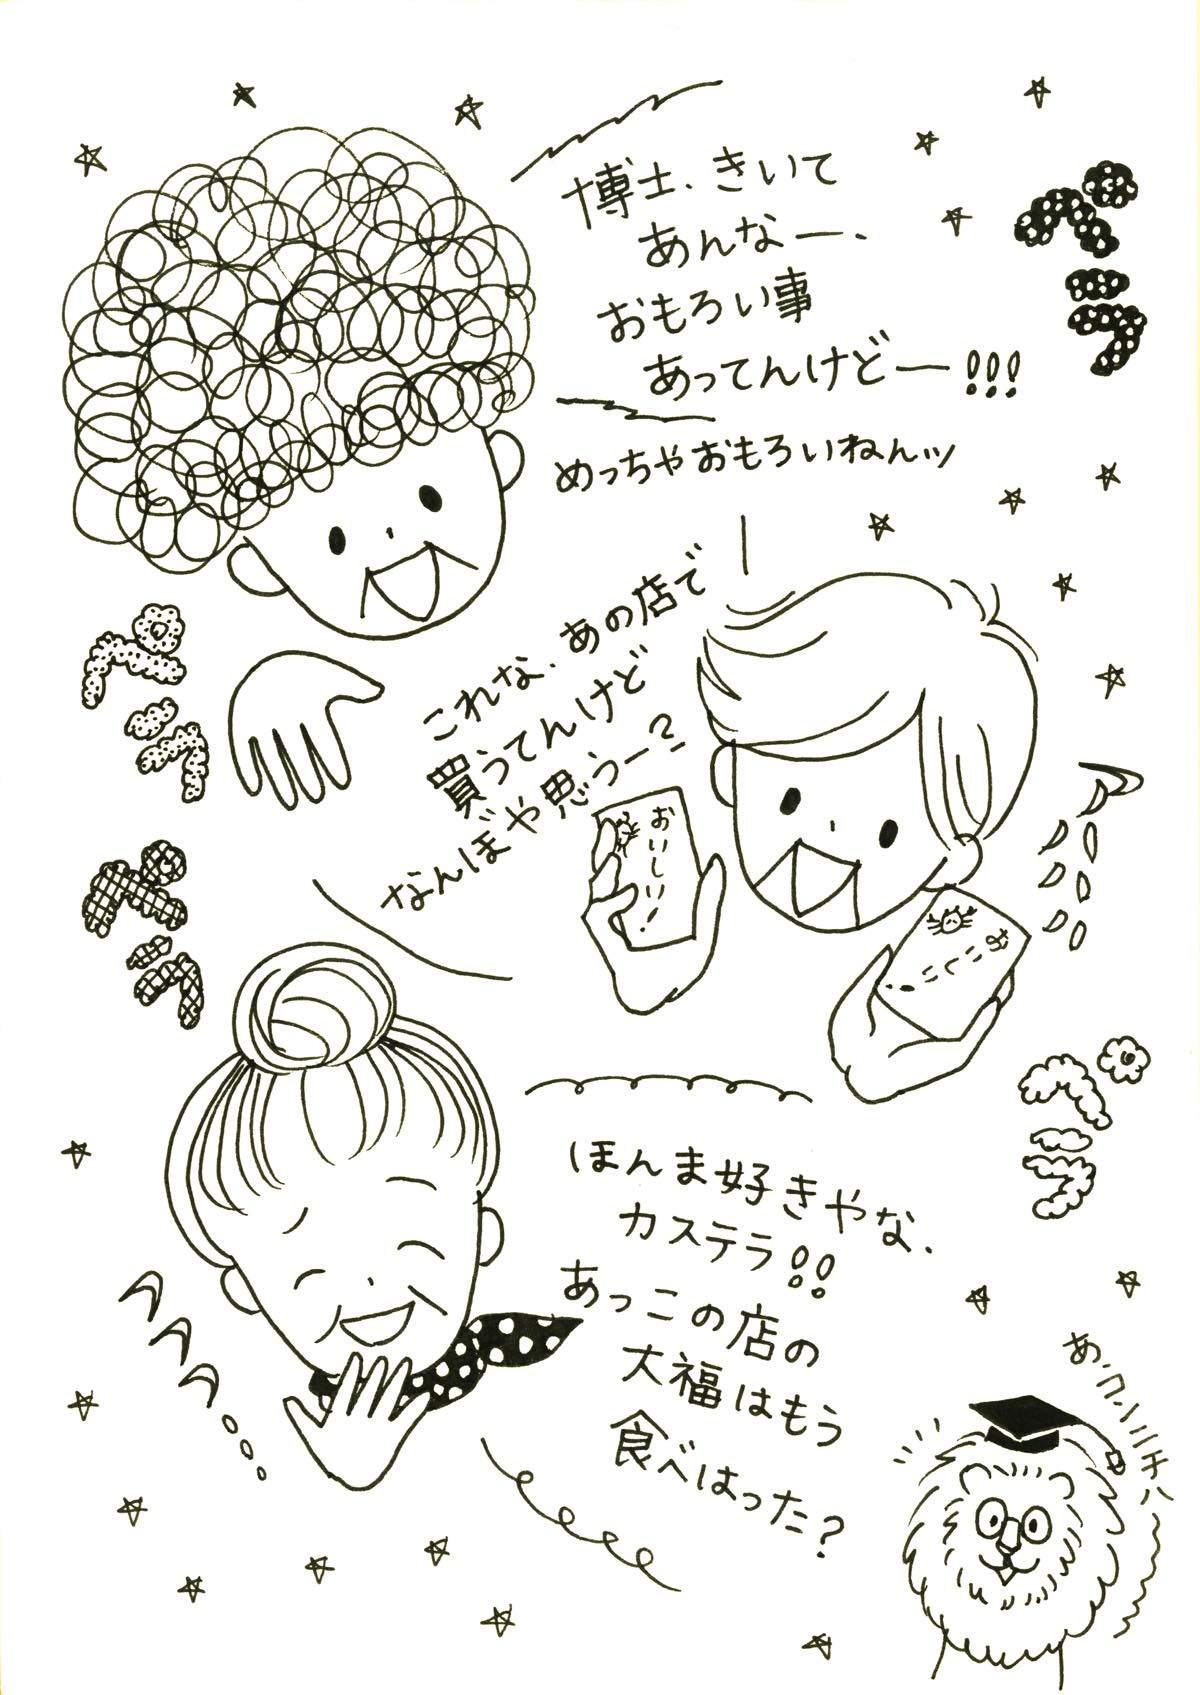 博士、きいて
あんなー、
おもろい事
あってんけどー!!!
めっちゃおもろいねんッ
ペラ
ペラ
これな、あの店で
買うてんけど
なんぼや思うー?
おいしい!
ペラ
ほんま好きやな、
カステラ!!
あっこの店の
大福はもう
食べはった?
ペラ
あ、コンニチハ